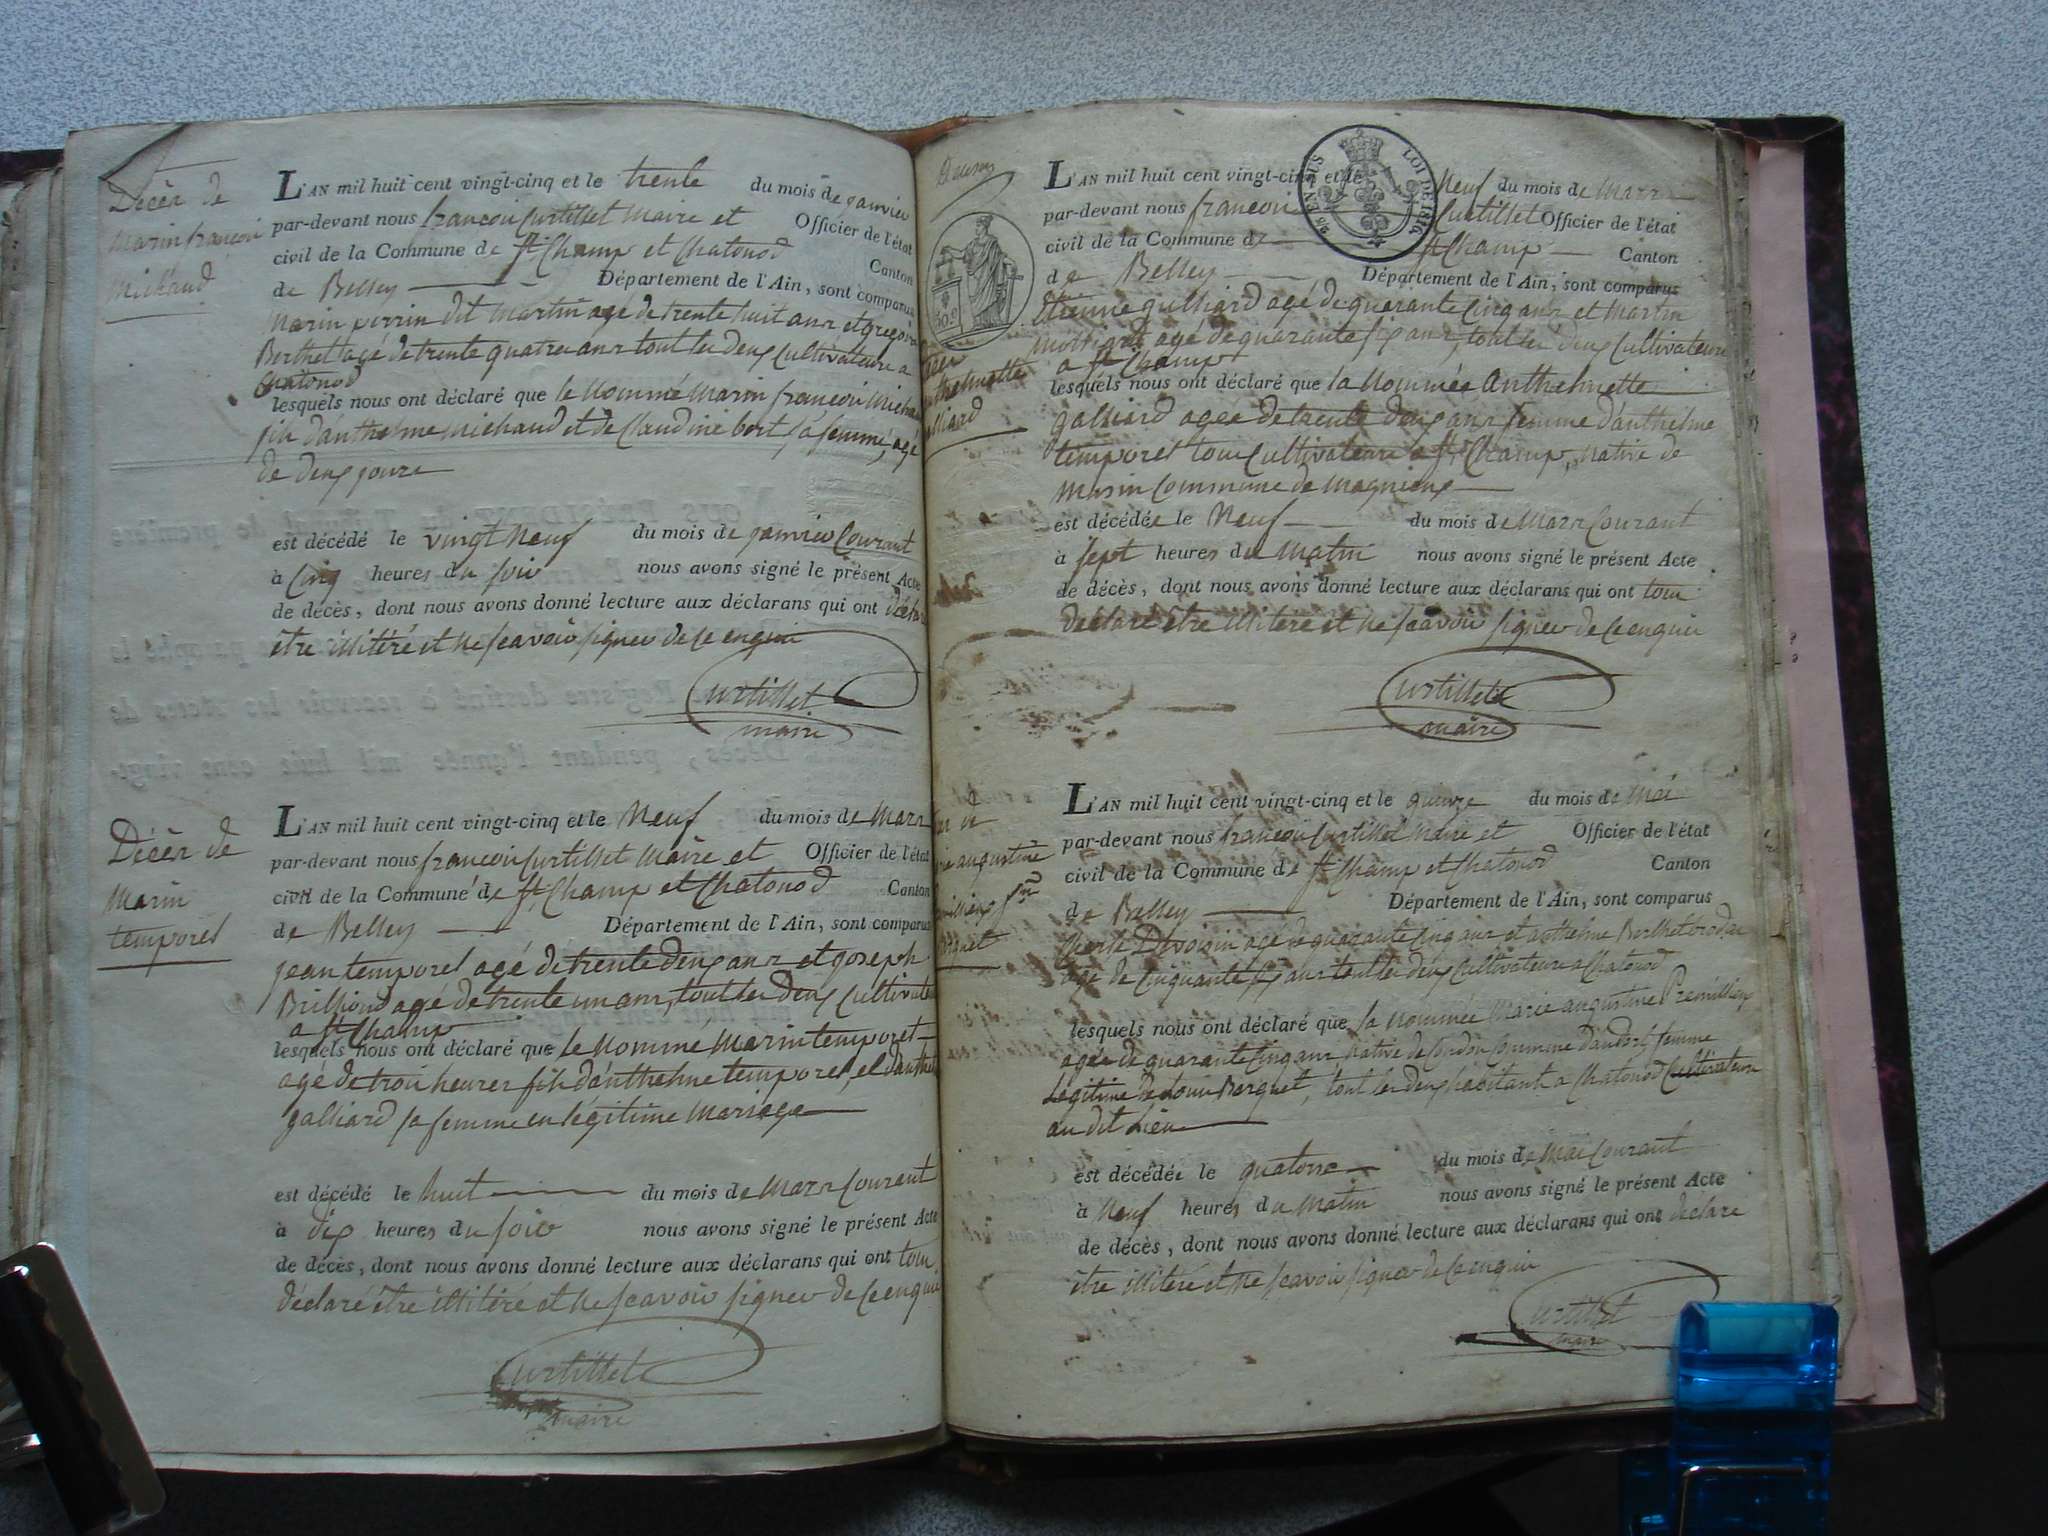 Décèr de
marin françoi
michaud
L'AN mil huit cent vingt-cinq et le trente du mois de janvier
par-devant nous françoi Curtillet maire et Officier de l'état
civil de la Commune de St Champ et Chatonod Canton
de Belley Département de l'Ain, sont comparus
marin perrin dit martin agé de trente huit anr et gregoire
Berthet agé de trente quatre anr tout les deux cultivateure a
Chatonod
lesquels nous ont déclaré que le nommé marin françoi micha
fih d'anthelme michaud et de Claudine bort sa femme, agé
de deux joure
est décédé le vingt neuf du mois de janvier Courant
à Cinq heures du soir nous avons signé le présent Acte
de décès, dont nous avons donné lecture aux déclarans qui ont
être illitéré et ne scavoir signer de ce enquir
Curtillet
maire
Décèr de
marin
temporel
L'AN mil huit cent vingt-cinq et le Neuf du mois de Marr
par-devant nous françoi Curtillet Maire et Officier de l'état
civil de la Commune de St Champ et Chatonod Canton
de Belley Département de l'Ain, sont comparus
jean temporel agé de trente deux anr et joseph
Brilliond agé de trente un anr, tout les deux cultivate
a St Champ
lesquels nous ont déclaré que le nommé Marin temporel
agé de troi heurer fih d'anthelme temporel, et d'anthel
galliard sa femme en légitime mariage
est décédé le huit du mois de Marr Courant
à dix heures du soir nous avons signé le présent Acte
de décès, dont nous avons donné lecture aux déclarans qui ont tour
déclaré être illitéré et ne scavoir signer de ce enquir
Curtillet
maire
VEN. DUS
LOI DE 1816
L'AN mil huit cent vingt-cinq et le Neuf du mois de Marr
par-devant nous françoi Curtillet Officier de l'état
civil de la Commune de St Champ Canton
de Belley Département de l'Ain, sont comparus
Etienne gulliard agé de quarante Cinq anr et Martin
agé de quarante six anr, tout les deux cultivateure
a St Champ
lesquels nous ont déclaré que la Nommée Anthelmette
galliard agée de trente deux anr femme d'anthelme
temporel tour Cultivateure a St Champ, native de
Musin Commune de Magnieux
est décédée le Neuf du mois de Marr Courant
à sept heures du Matin nous avons signé le présent Acte
de décès, dont nous avons donné lecture aux déclarans qui ont tour
déclaré être illitéré et ne scavoir signer de ce enquir
Curtillet
maire
L'AN mil huit cent vingt-cinq et le du mois de Mai
par-devant nous françoi Curtillet Maire et Officier de l'état
civil de la Commune de St Champ et Chatonod Canton
de Belley Département de l'Ain, sont comparus
Devoisin agé de quarante Cinq anr et anthelme Berthet
agé de Cinquante six anr tout les deux Cultivateure a Chatonod
lesquels nous ont déclaré que la nommée Marie augustine Premillieux
agée de quarante Cinq anr native de Cordon Commune femme
Légitime de Loui Berguet, tout les deux habitant a Chatonod Cultivateure
au dit Lieu
est décédée le quatorze du mois de Mai Courant
à Neuf heures du Matin nous avons signé le présent Acte
de décès, dont nous avons donné lecture aux déclarans qui ont déclaré
être illitéré et ne scavoir signer de ce enquir
Curtillet
maire